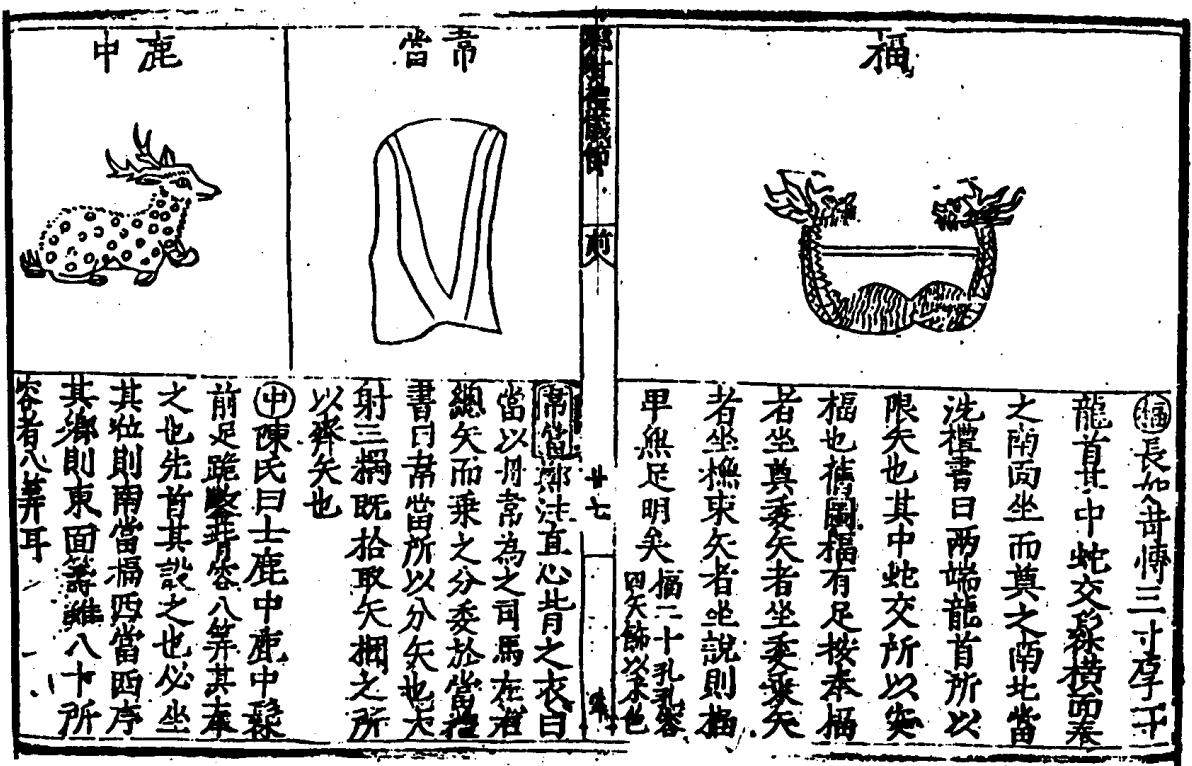 楅
楅長如笴博三寸厚寸
龍首其中蛇交髹橫而奉
之南面坐而奠之南北當
洗禮書曰兩端龍首所以
限矢也其中蛇交所以安
楅也舊圖楅有足按奉楅
者坐奠委矢者坐委乘矢
者坐撫束矢者坐說則楅
卑無足明矣
楅二十孔孔容
四矢飾以朱色
鄉射禮儀節
前
廿七
韋當
韋當鄭注直心背之衣曰
當以丹韋為之司馬左右
總矢而乘之分委於當禮
書曰韋當所以分矢也大
射三耦既拾取矢梱之所
以齊矢也
鹿中
中陳氏曰士鹿中鹿中髹
前足跪鑿背容八筭其奉
之也先首其設之也必坐
其位則南當楅西當西序
其鄉則東面籌雖八十所
容者八筭耳